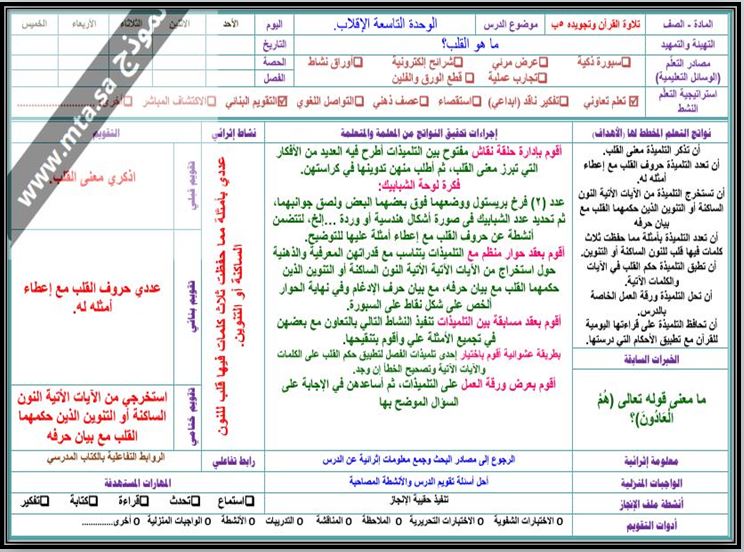 المادة - الصف
تلاوة القرآن وتجويده ٥ب
موضوع الدرس
الوحدة التاسعة الإقلاب.
اليوم
الأحد
الاثنين
الثلاثاء
الأربعاء
الخميس
التهيئة والتمهيد
ما هو القلب؟
التاريخ
مصادر التعلم
(الوسائل التعليمية)
سبورة ذكية
عرض مرئي
شرائح إلكترونية
أوراق نشاط
تجارب عملية
قطع الورق والفلين
الحصة
الفصل
استراتيجية التعلم
النشط
تعلم تعاوني
تفكير ناقد (ابداعي)
استقصاء
عصف ذهني
التواصل اللغوي
التقويم البنائي
الاكتشاف المباشر
أخرى
نموذج www.mta.sa
نواتج التعلم المخطط لها (الأهداف)
إجراءات تحقيق النواتج من المعلمة والمتعلمة
نشاط إثرائي
التقويم
أن تذكر التلميذة معنى القلب.
أن تعدد التلميذة حروف القلب مع إعطاء
أمثله له.
أن تستخرج التلميذة من الآيات الآتية النون
الساكنة أو التنوين الذين حكمهما القلب مع
بيان حرفه
أن تعدد التلميذة بأمثلة مما حفظت ثلاث
كلمات فيها قلب للنون الساكنة أو التنوين.
أن تطبق التلميذة حكم القلب في الآيات
والكلمات الآتية.
أن تحل التلميذة ورقة العمل الخاصة
بالدرس.
أن تحافظ التلميذة على قراءتها اليومية
للقرآن مع تطبيق الأحكام التي درستها.
الخبرات السابقة
ما معنى قوله تعالى (هُمُ
الْعَادُونَ)؟
أقوم بإدارة حلقة نقاش مفتوح بين التلميذات أطرح فيه العديد من الأفكار
التي تبرز معنى القلب، ثم أطلب منهن تدوينها في كراستهن.
فكرة لوحة الشبابيك:
عدد (٢) فرخ بريستول ووضعهما فوق بعضهما البعض ولصق جوانبهما،
ثم تحديد عدد الشبابيك فى صورة أشكال هندسية أو وردة ...إلخ، لتتضمن
أنشطة عن حروف القلب مع إعطاء أمثلة عليها للتوضيح.
أقوم بعقد حوار منظم مع التلميذات يتناسب مع قدراتهن المعرفية والذهنية
حول استخراج من الآيات الآتية الآتية النون الساكنة أو التنوين الذين
حكمهما القلب مع بيان حرفه، مع بيان حرف الإدغام وفي نهاية الحوار
ألخص على شكل نقاط على السبورة.
أقوم بعقد مسابقة بين التلميذات تنفيذ النشاط التالي بالتعاون مع بعضهن
في تجميع الأمثلة علي وأقوم بتنقيحها.
بطريقة عشوائية أقوم باختيار إحدى تلميذات الفصل لتطبيق حكم القلب على الكلمات
والآيات الآتية وتصحيح الخطأ إن وجد.
أقوم بعرض ورقة العمل على التلميذات، ثم أساعدهن في الإجابة على
السؤال الموضح بها
عددي بأمثلة مما حفظت ثلاث كلمات فيها قلب للنون
الساكنة أو التنوين.
تقويم قبلي
اذكري معنى القلب.
تقويم بنائي
عددي حروف القلب مع إعطاء
أمثله له.
تقويم ختامي
استخرجي من الآيات الآتية النون
الساكنة أو التنوين الذين حكمهما
القلب مع بيان حرفه
معلومة إثرائية
الرجوع إلى مصادر البحث وجمع معلومات إثرائية عن الدرس
رابط تفاعلي
الروابط التفاعلية بالكتاب المدرسي
الواجبات المنزلية
أحل أسئلة تقويم الدرس والأنشطة المصاحبة
المهارات المستهدفة
أنشطة ملف الإنجاز
تنفيذ حقيبة الانجاز
استماع
تحدث
قراءة
كتابة
تفكير
أدوات التقويم
الاختبارات الشفوية
الاختبارات التحريرية
الملاحظة
المناقشة
التدريبات
الأنشطة
الواجبات المنزلية
أخرى..............